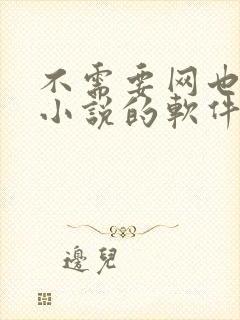 不需要网也
小说的軟件
邊兒